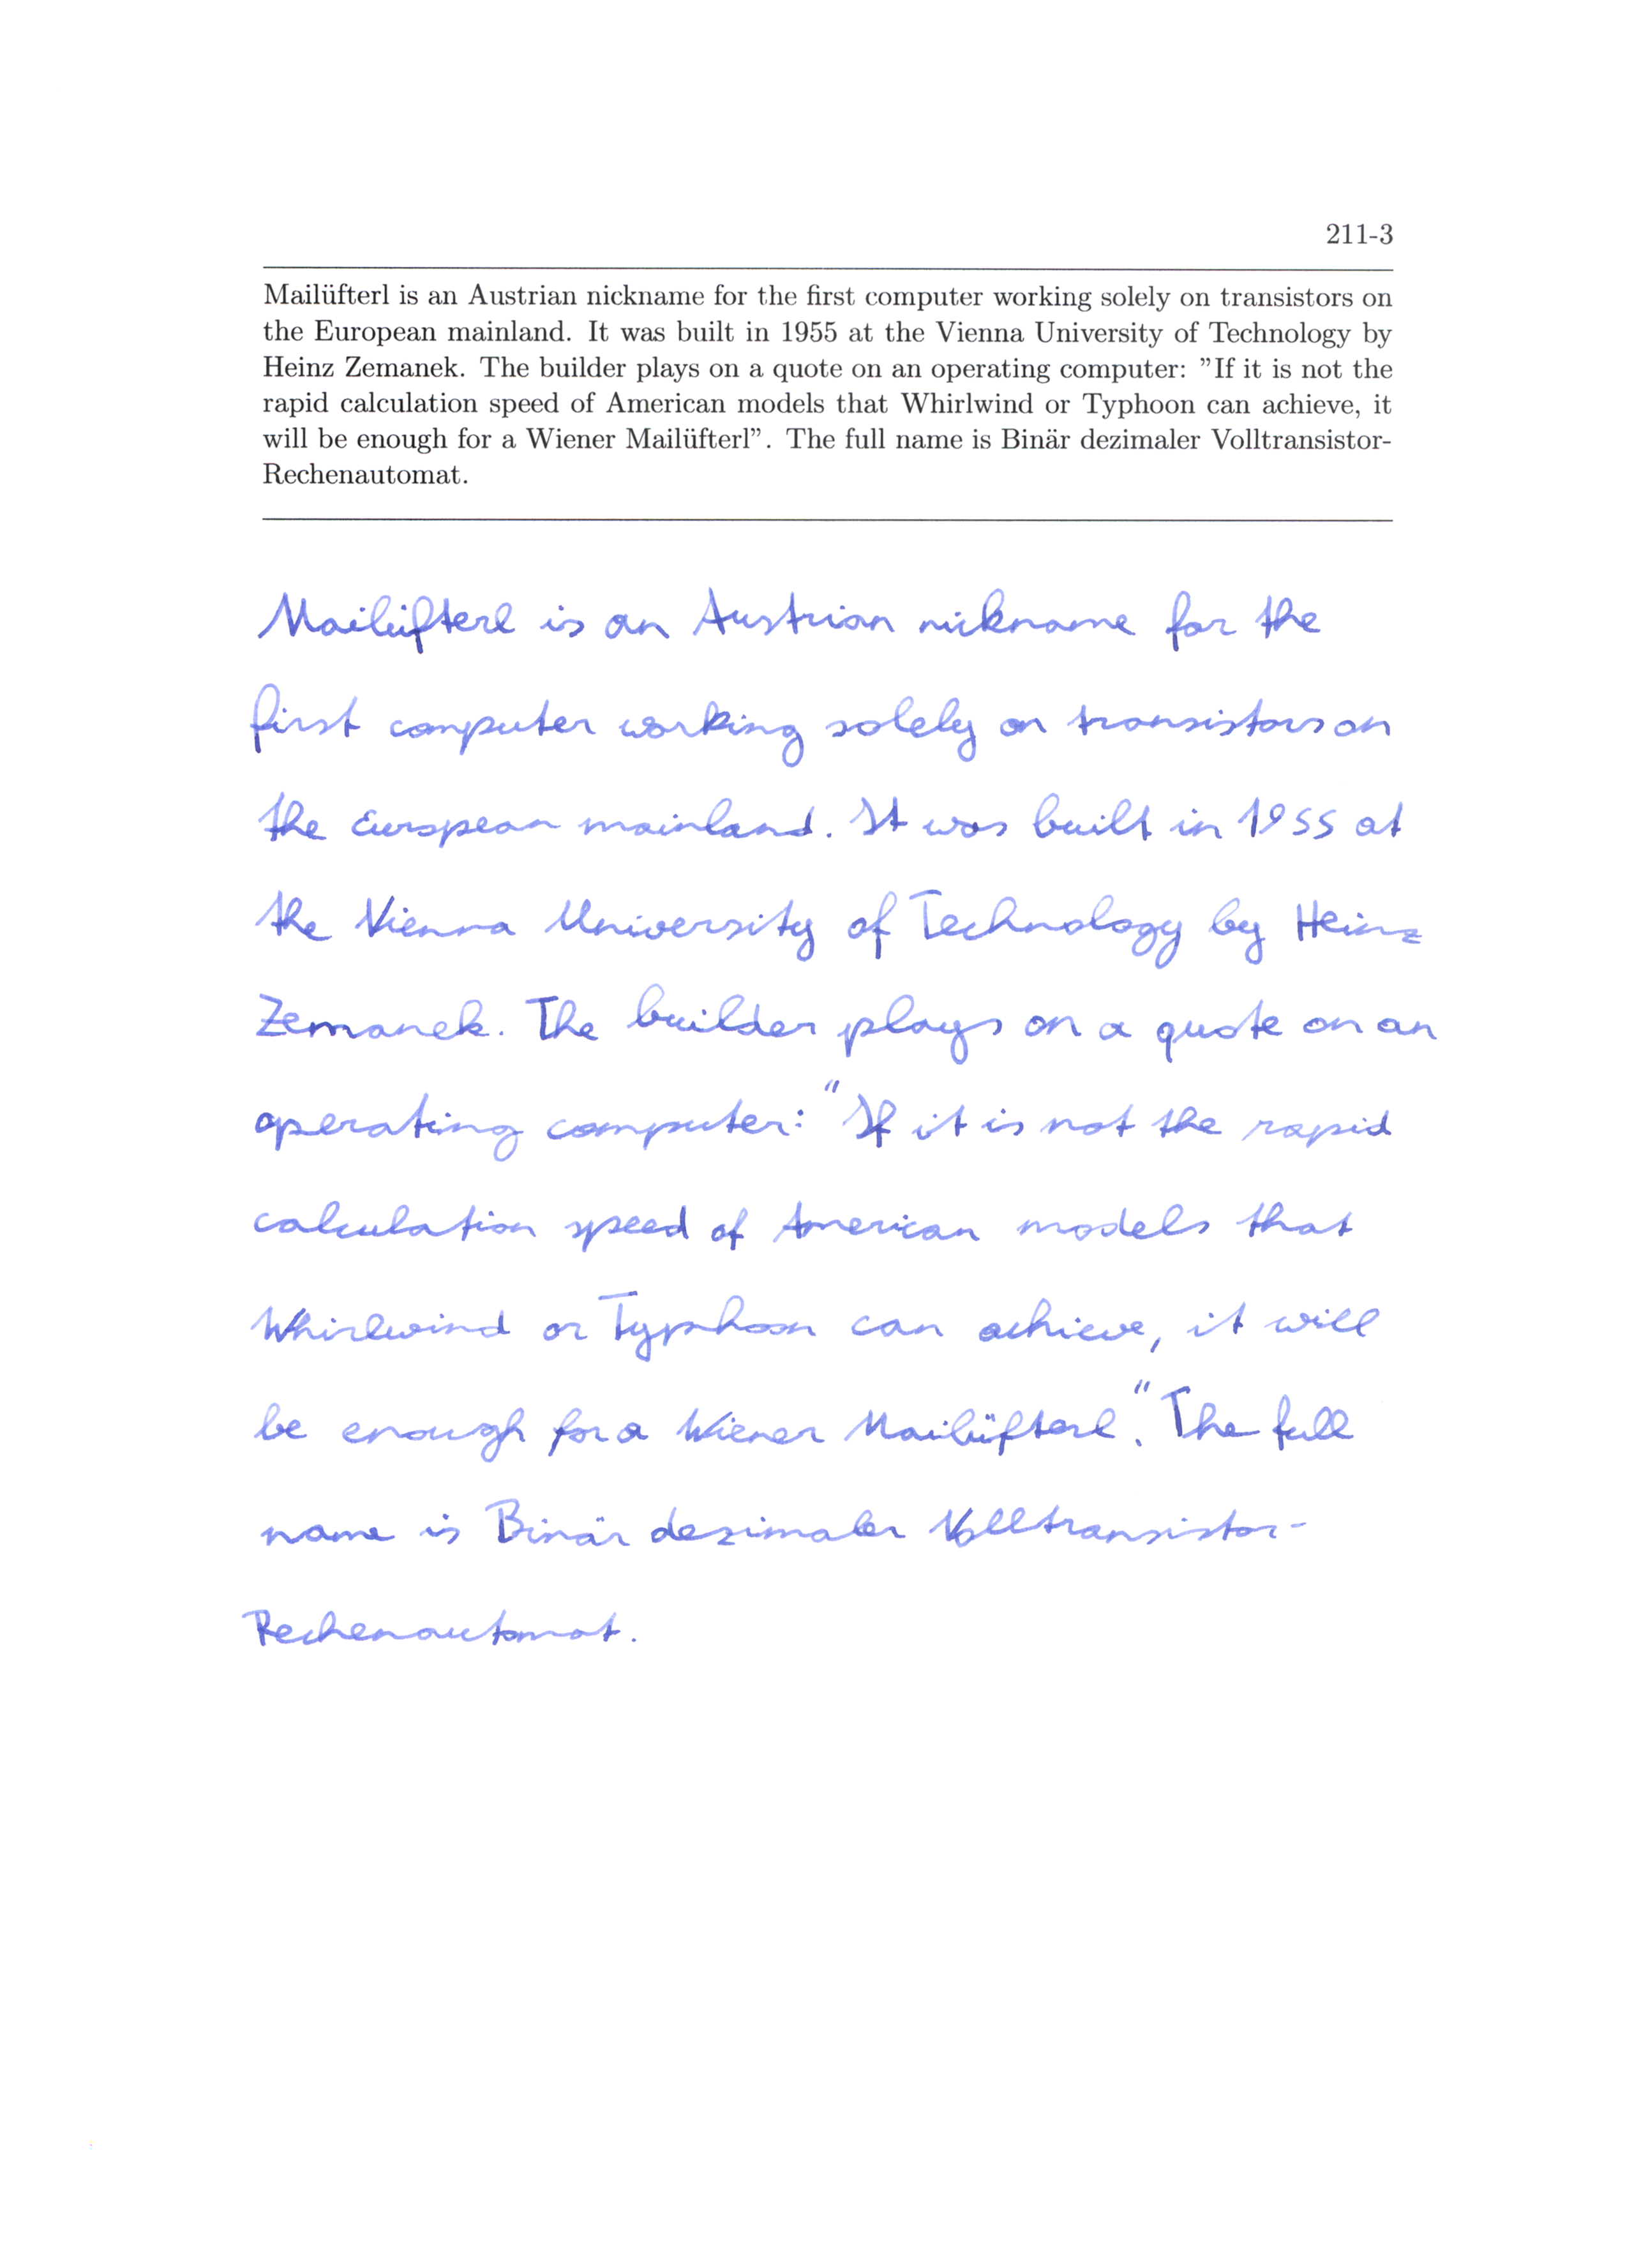 211-3
Mailüfterl is an Austrian nickname for the first computer working solely on transistors on
the European mainland. It was built in 1955 at the Vienna University of Technology by
Heinz Zemanek. The builder plays on a quote on an operating computer: ”If it is not the
rapid calculation speed of American models that Whirlwind or Typhoon can achieve, it
will be enough for a Wiener Mailüfterl”. The full name is Binär dezimaler Volltransistor-
Rechenautomat.
Mailüfterl is an Austrian nickname for the
first computer working solely on transistors on
the European mainland. It was built in 1955 at
the Vienna University of Technology by Heinz
Zemanek. The builder plays on a quote on an
operating computer: "If it is not the rapid
calculation speed of American models that
Whirlwind or Typhoon can achieve, it will
be enough for a Wiener Mailüfterl". The full
name is Binär dezimaler Volltransistor-
Rechenautomat.